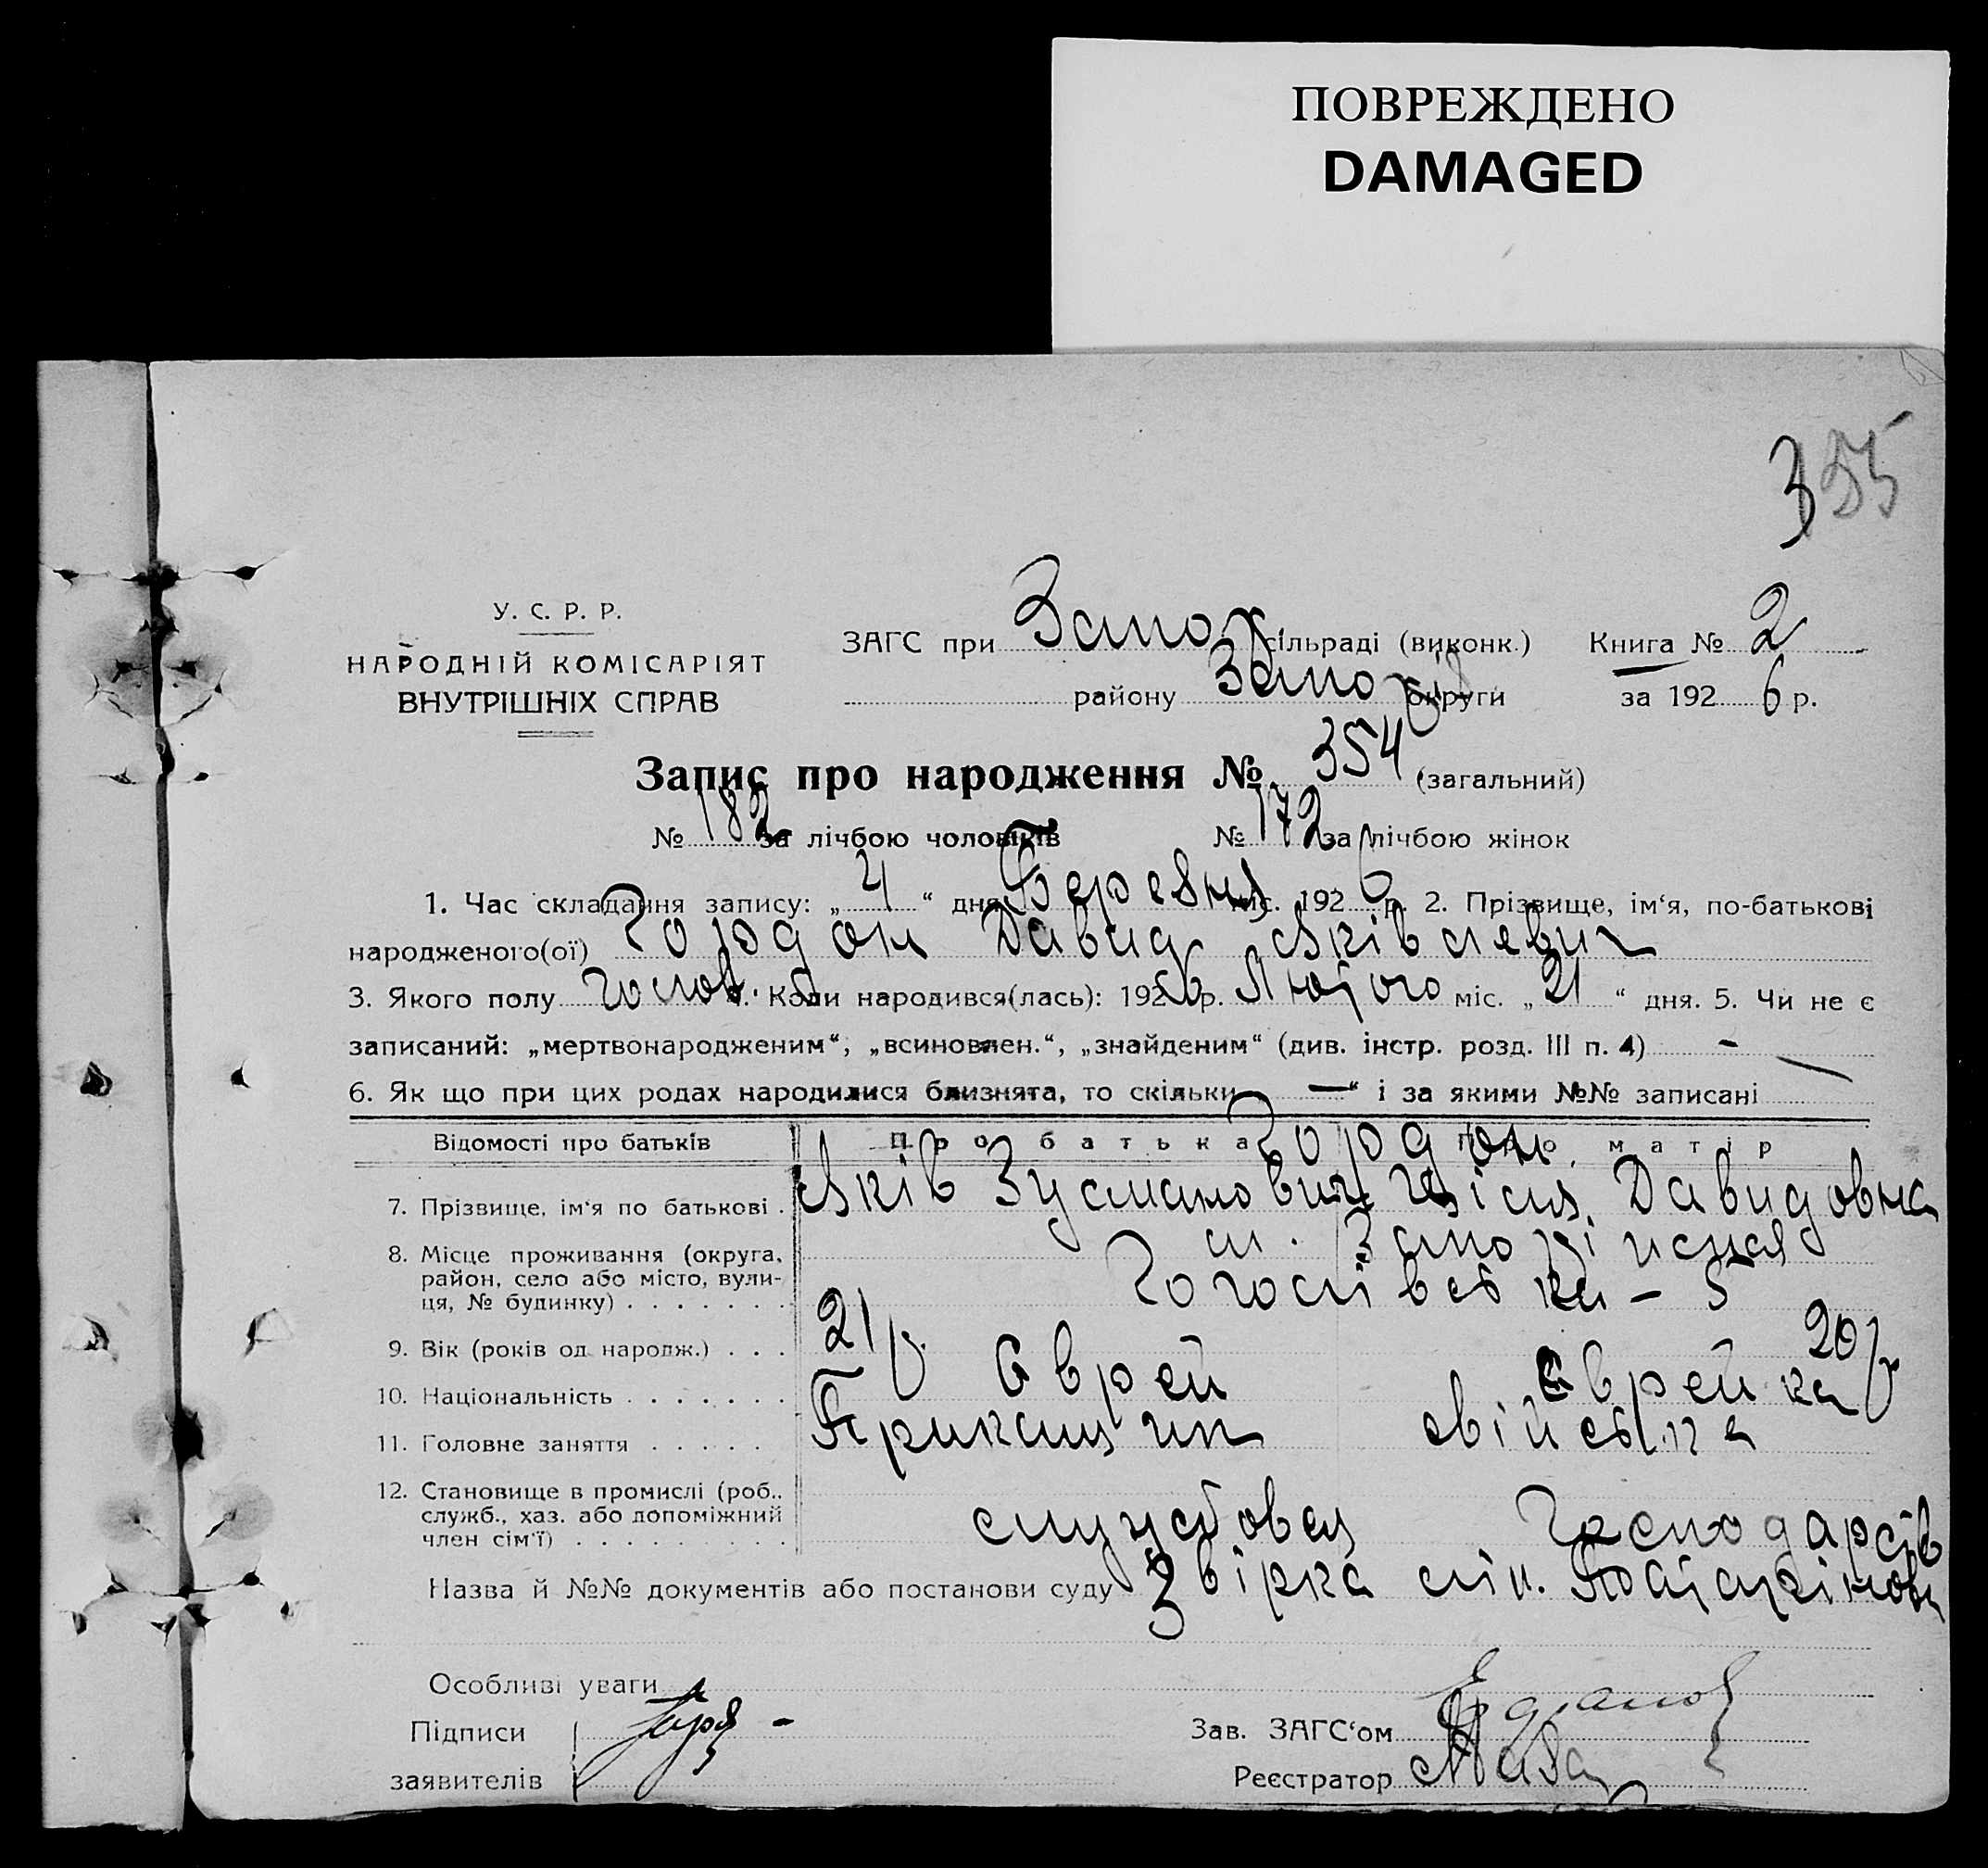 ПОВРЕЖДЕНО
DAMAGED
355
У. С. Р. Р.
НАРОДНІЙ КОМІСАРІЯТ
ВНУТРІШНІХ СПРАВ
ЗАГС при Запор сільраді (виконк.) Книга № 2
району Запоріж округи за 1926 р.
Запис про народження № 354 (загальний)
№ 182 за лічбою чоловіків № 172 за лічбою жінок
1. Час складання запису: „4“ дня Березня міс. 1926 р. 2. Прізвище, ім‘я, по-батькові
народженого(ої) Гордон Давид Яківлевич
3. Якого полу чолов. 4. Коли народився(лась): 1926 р. Лютого міс. „21“ дня. 5. Чи не є
записаний: „мертвонародженим“, „всиновлен.“, „знайденим“ (див. інстр. розд. III п. 4) -
6. Як що при цих родах народилися близнята, то скільки „—“ і за якими №№ записані
Відомості про батьків Про батька Гордон Про матір
7. Прізвище, ім‘я по батькові . Яків Зусманович Давидовна
8. Місце проживання (округа, м.
район, село або місто, вули-
ця, № будинку) . . . . . . . - 5
9. Вік (років од народж.) . . . 21 р. 20 р
10. Національність . . . . . . . Єврей Єврейка
11. Головне заняття . . . . . Прикащик
12. Становище в промислі (роб.,
служб., хаз. або допоміжний
член сім‘ї) . . . . . . . . . службовец
Назва й №№ документів або постанови суду
Особливі уваги
Підписи Зав. ЗАГС‘ом
заявителів Реєстратор